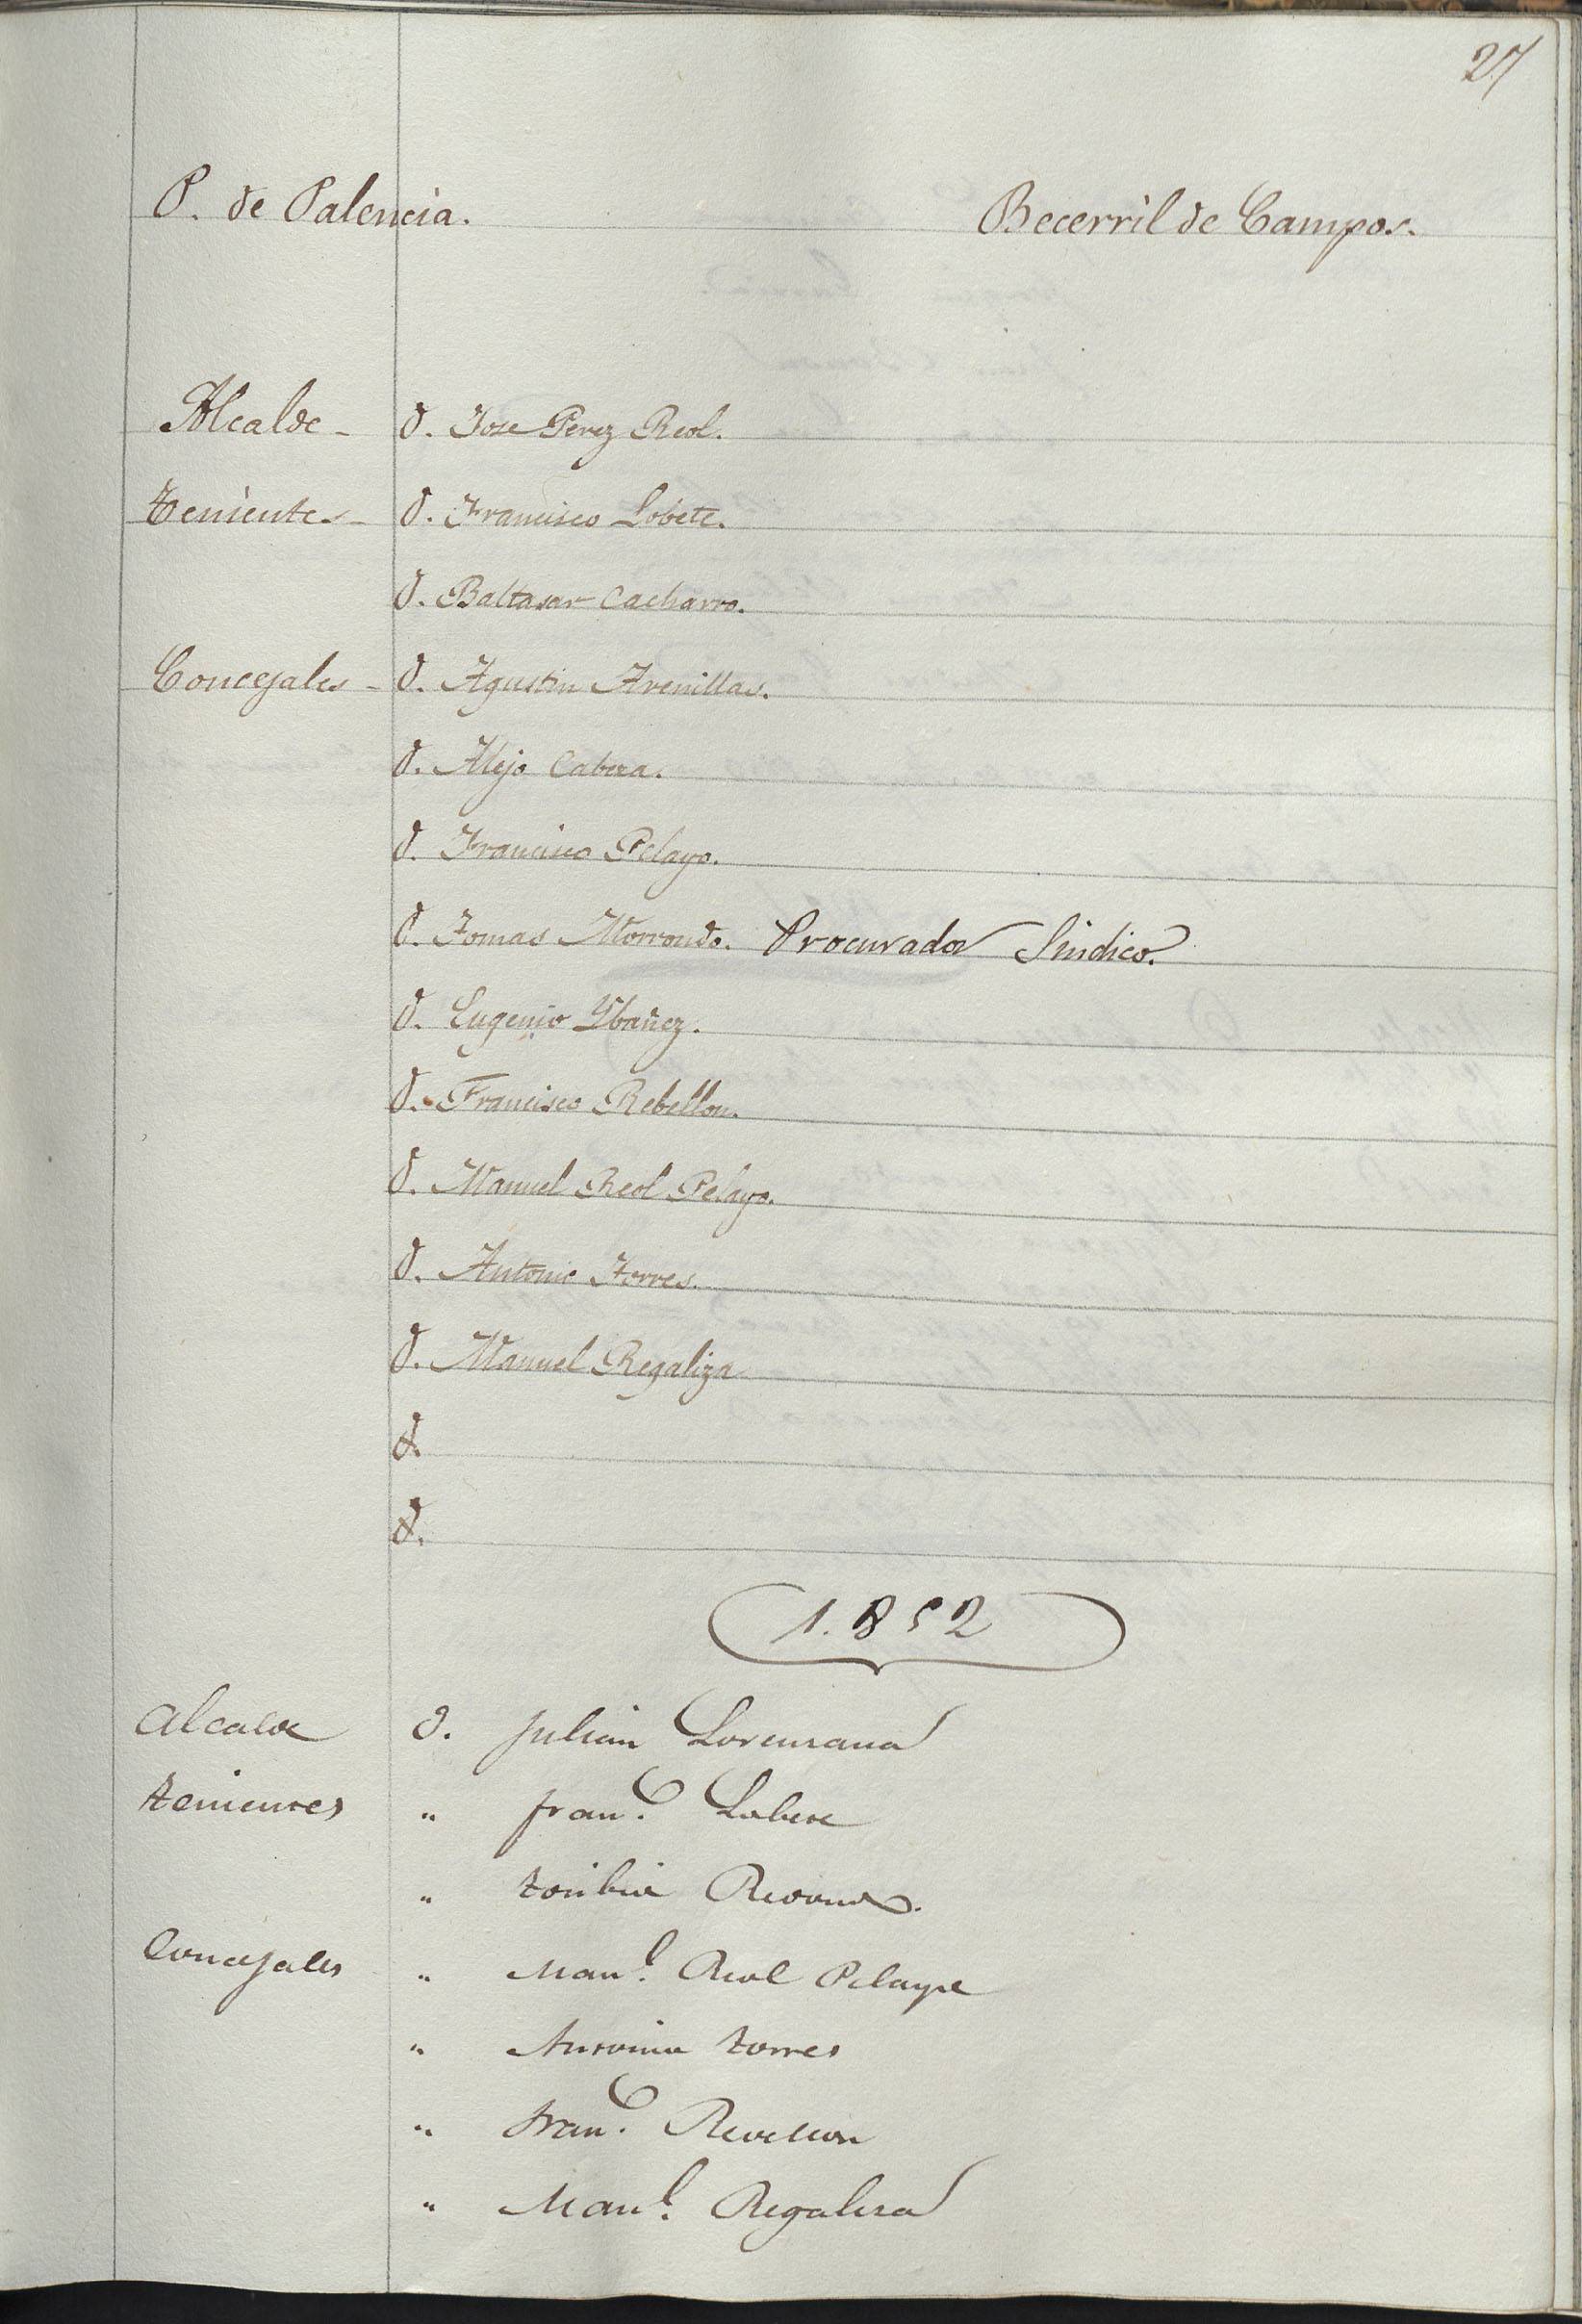 27
P. de Palencia. Becerril de Campos.
Alcalde - D. Jose Perez Reol.
Tenientes - D. Francisco Lobete.
D. Baltasar Cacharro.
Concejales - D. Agustin Arenillas.
D. Alejo Cabeza.
D. Francisco Pelayo.
D. Tomas Morrondo. Procurador Sindico.
D. Eugenio Ybañez.
D. Francisco Rebellon.
D. Manuel Reol Pelayo.
D. Antonio Torres.
D. Manuel Regaliza
D.
D.
1.852
Alcalde D. Julian Lorenzana
Tenientes " Fran.co Lobete
" Toribio Redondo.
Concejales " Man.l Reol Pelayo
" Antonio Torres
" Fran.co Revellon
" Man.l Regaliza